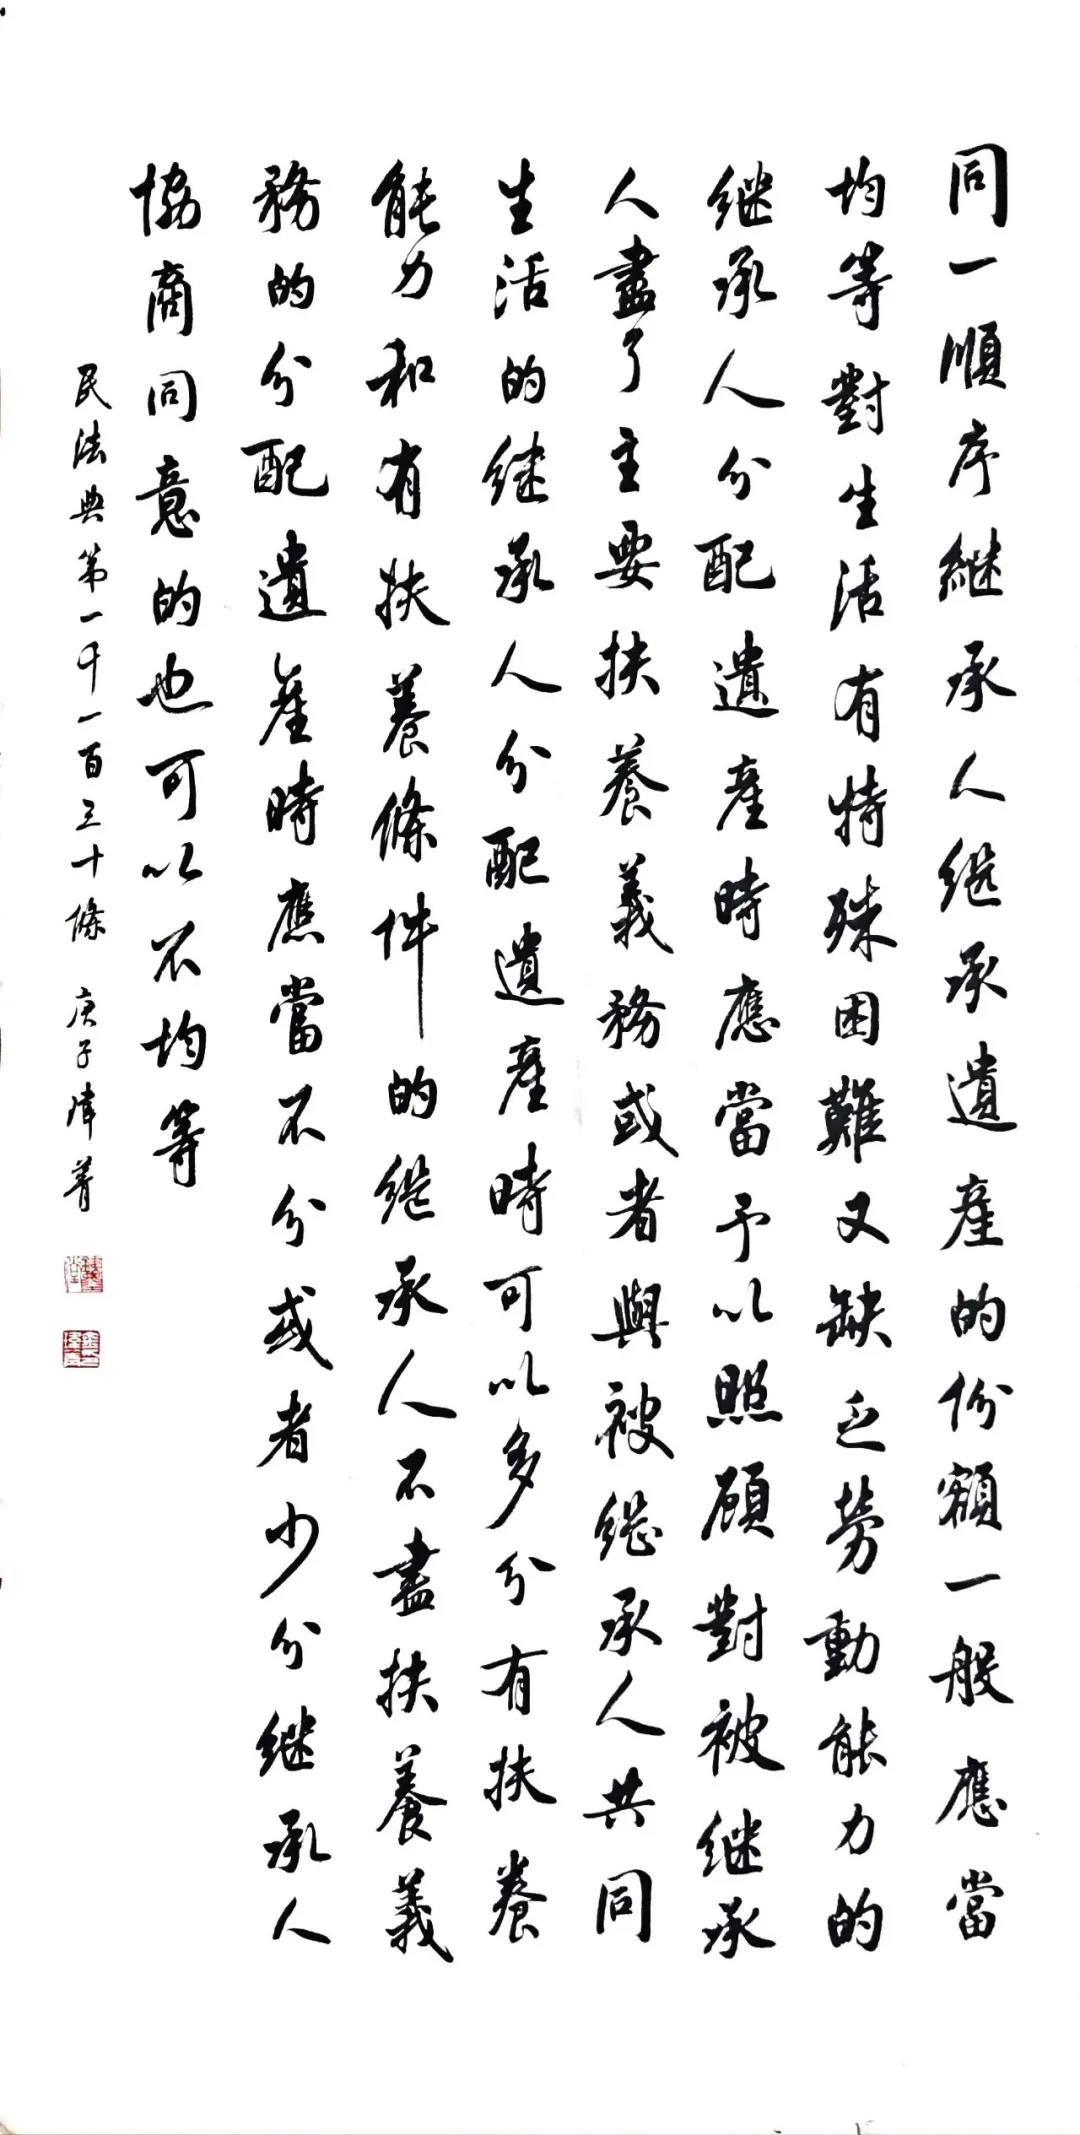 同一順序繼承人继承遺產的份額一般應當
均等對生活有特殊困難又缺乏勞動能力的
继承人分配遺產時應當予以照顾對被继承
人盡了主要扶養義務或者與被继承人共同
生活的继承人分配遺產時可以多分有扶養
能力和有扶養條件的继承人不盡扶養義
務的分配遺產時應當不分或者少分继承人
協商同意的也可以不均等
民法典第一千一百三十條 庚子瑋菁